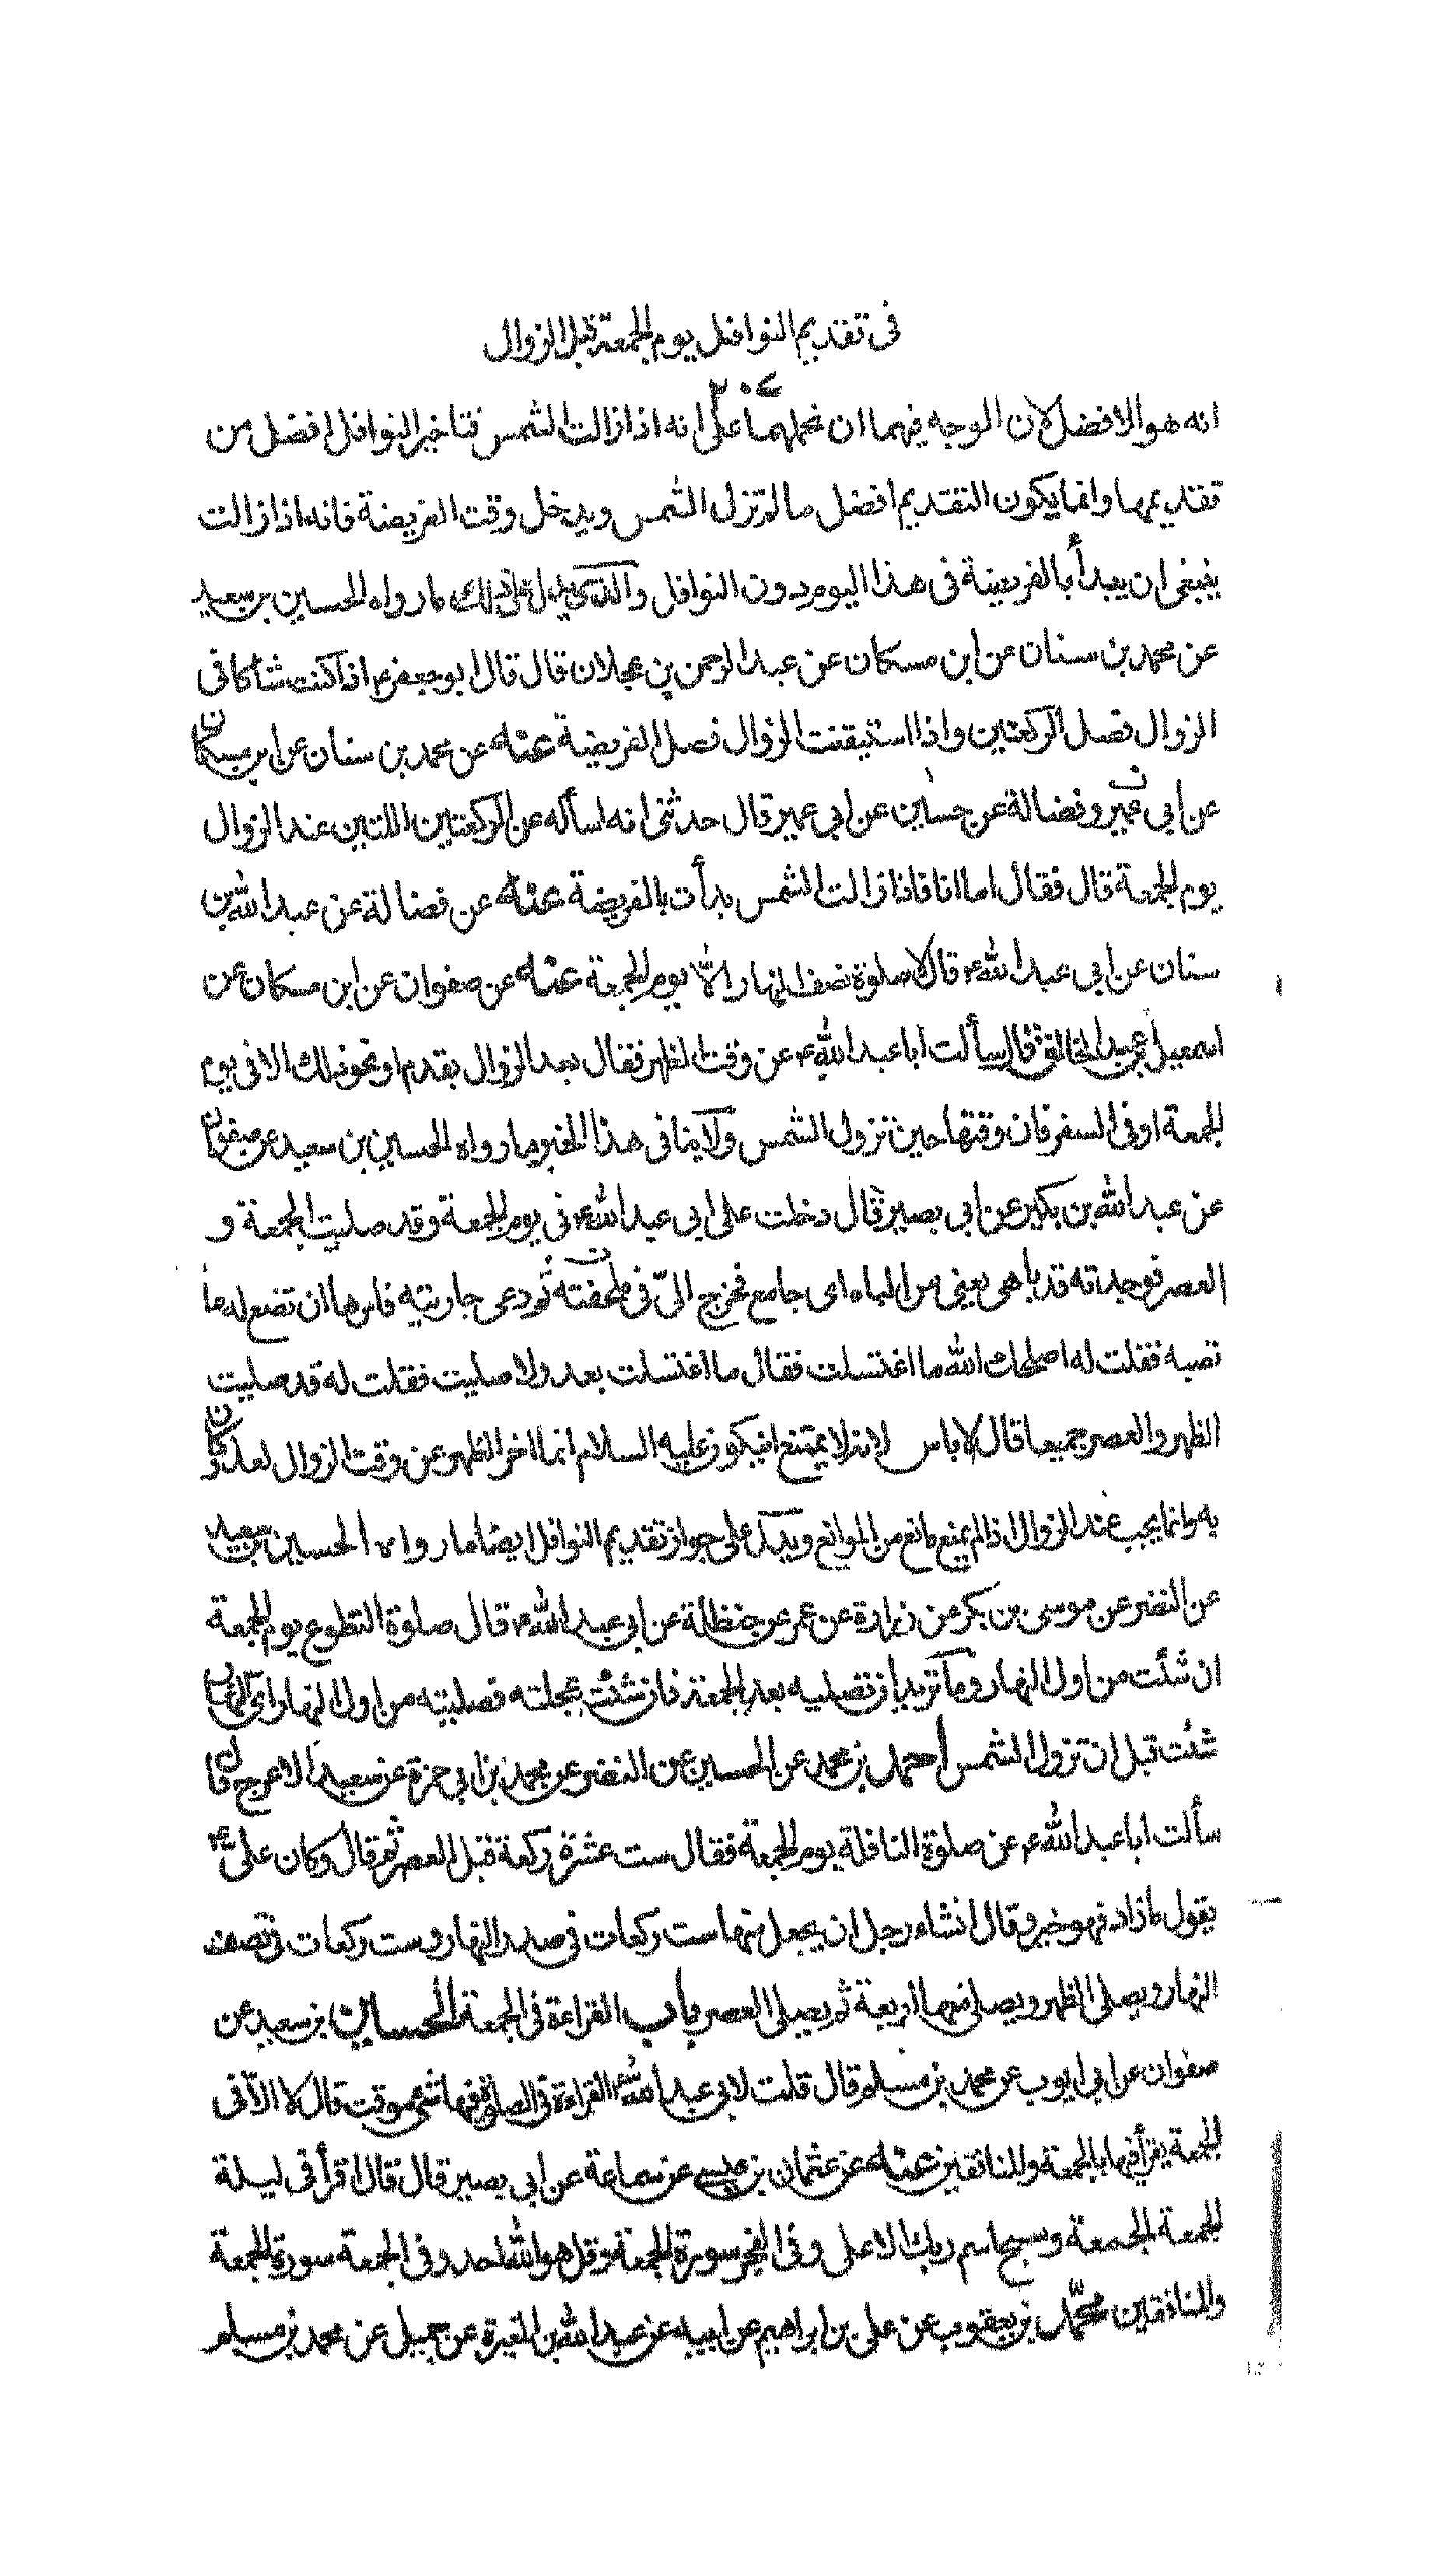 في تقديم النوافل يوم الجمعة قبل الزوال
٢٠٤
انه هو الافضل لان الوجه فيهما ان نحملهما على انه اذا زالت الشمس فتاخير النوافل افضل من
تقديمها وانما يكون التقديم افضل مالم تزل الشمس ويدخل وقت الفريضة فانه اذا زالت
ينبغي ان يبدأ بالفريضة في هذا اليوم دون النوافل والذي يدل على ذلك مارواه الحسين بن سعيد
عن محمد بن سنان عن ابن مسكان عن عبد الرحمن بن عجلان قال قال ابو جعفر ع اذا كنت شاكا في
الزوال فصل الركعتين واذا استيقنت الزوال فصل الفريضة عنه عن محمد بن سنان عن ابن مسكان
عن ابي عمير وفضالة عن حسين عن ابي عمير قال حدثني انه اسأله عن الركعتين اللتين عند الزوال
يوم الجمعة قال فقال اما انا فاذا زالت الشمس بدأت بالفريضة عنه عن فضالة عن عبد الله بن
سنان عن ابي عبد الله ع قال لا صلوة نصف النهار الا يوم الجمعة عنه عن صفوان عن ابن مسكان عن
اسمعيل بن عبد الخالق قال سألت ابا عبد الله ع عن وقت الظهر فقال بعد الزوال بقدم او نحو ذلك الا في يوم
الجمعة او في السفر فان وقتها حين تزول الشمس ولا ينافي هذا الخبر ما رواه الحسين بن سعيد عن صفوان
عن عبد الله بن بكير عن ابي بصير قال دخلت على ابي عبد الله ع في يوم الجمعة وقد صليت الجمعة و
العصر فوجدته قد باهى يعني من الباه اى جامع فخرج الىّ في ملحفته ثم دعى جاريته فامرها ان تضع له ما
تصبه فقلت له اصلحك الله ما اغتسلت فقال ما اغتسلت بعد ولا صليت فقلت له قد صليت
الظهر والعصر جميعا قال لا باس لانه لا يمتنع ان يكون عليه السلام انما اخر الظهر عن وقت الزوال لعذر كان
به وانما يجب عند الزوال اذا لم يمنع مانع من الموانع ويدل على جواز تقديم النوافل ايضا ما رواه الحسين بن سعيد
عن النضر عن موسى بن بكر عن زرارة عن عمر عن حنظلة عن ابي عبد الله ع قال صلوة التطوع يوم الجمعة
ان شئت من اول النهار وما تريد ان تصليه بعد الجمعة فان شئت عجلته فصليته من اول النهار اى النهار
شئت قبل ان تزول الشمس أحمد بن محمد عن الحسين عن النضر عن محمد بن ابي حمزة عن سعيد الاعرج قال
سألت ابا عبد الله ع عن صلوة النافلة يوم الجمعة فقال ست عشرة ركعة قبل العصر ثم قال وكان علي ع
يقول ما زاد فهو خير وقال ان شاء رجل ان يجعل منها ست ركعات في صدر النهار وست ركعات في نصف
النهار ويصلي الظهر ويصلي منها اربعة ثم يصلي العصر باب القراءة في الجمعة الحسين بن سعيد عن
صفوان عن ابي ايوب عن محمد بن مسلم قال قلت لابي عبد الله ع القراءة في الصلوة فيها شئ موقت قال لا الا في
الجمعة يقرأ فيها بالجمعة والمنافقين عنه عن عثمان بن عيسى عن سماعة عن ابي بصير قال قال اقرأ في ليلة
الجمعة الجمعة وسبح اسم ربك الاعلى وفي الفجر سورة الجمعة وقل هو الله احد وفي الجمعة سورة الجمعة
والمنافقين محمّد بن يعقوب عن علي بن ابراهيم عن ابيه عن عبد الله بن المغيرة عن جميل عن محمد بن مسلم